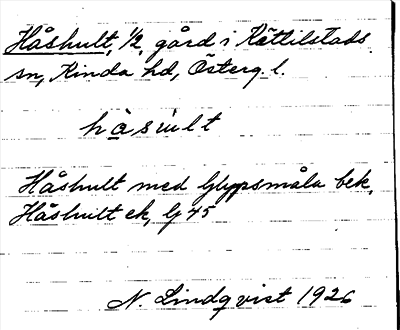 Håshult, 1/2, gård i Kättilstads
sn, Kinda hd, Österg. l.
hàsult
Håshult med Glypsmåla bek.
Håshult ek, G 45
N. Lindqvist 1926